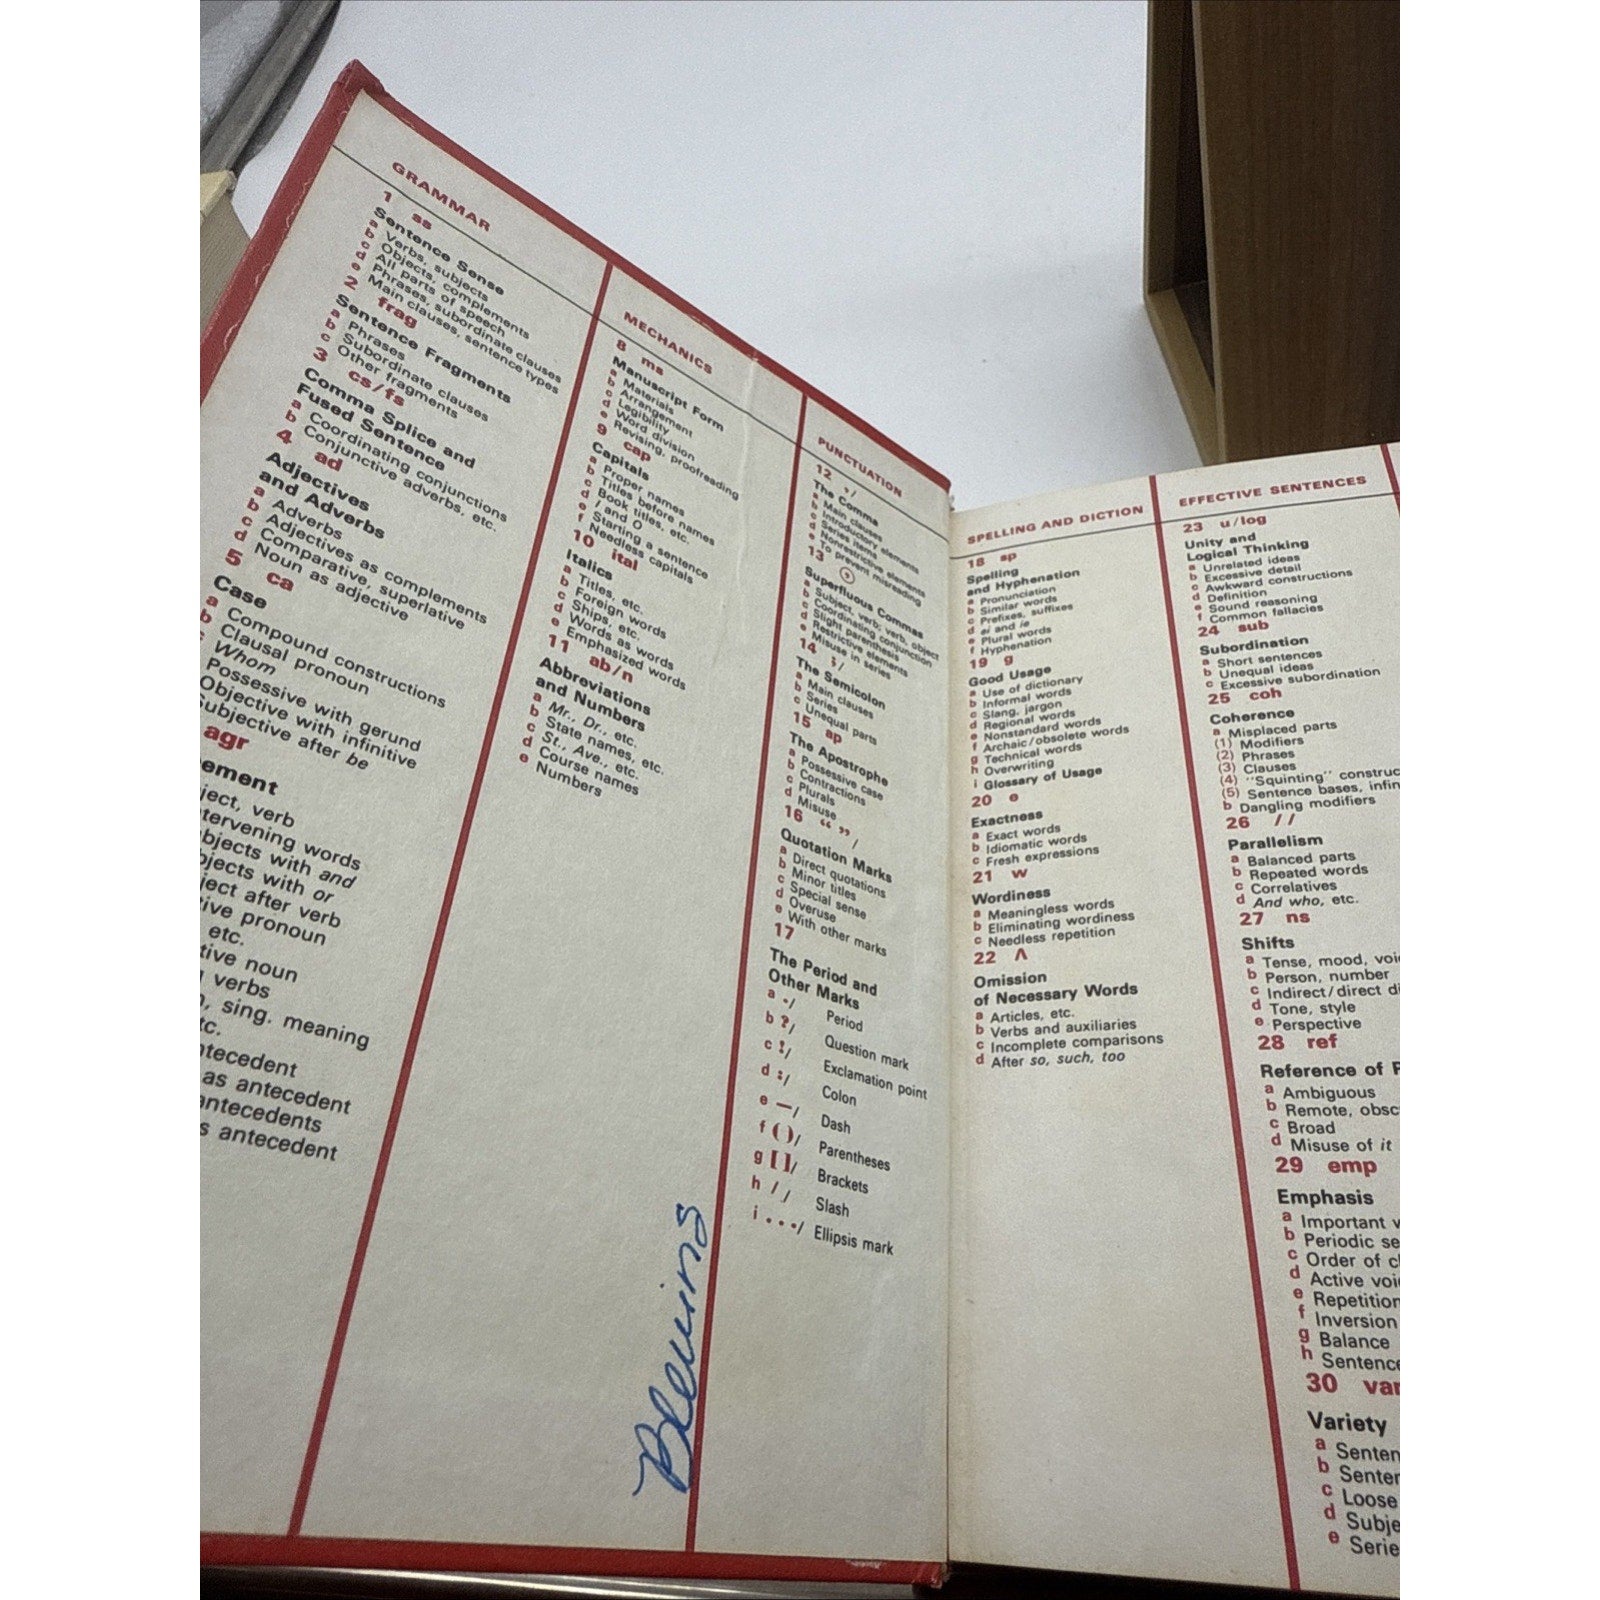 GRAMMAR
1 ss
Sentence Sense
a Verbs, subjects
b Objects, complements
c All parts of speech
d Phrases, subordinate clauses
e Main clauses, sentence types
2 frag
Sentence Fragments
a Phrases
b Subordinate clauses
c Other fragments
3 cs/fs
Comma Splice and
Fused Sentence
a Coordinating conjunctions
b Conjunctive adverbs, etc.
4 ad
Adjectives
and Adverbs
a Adverbs
b Adjectives as complements
c Comparative, superlative
d Noun as adjective
5 ca
Case
a Compound constructions
b Clausal pronoun
Whom
Possessive with gerund
Objective with infinitive
Subjective after be
agr
verb
words
with and
with or
after verb
pronoun
etc.
noun
verbs
sing. meaning
antecedent
as antecedent
antecedents
antecedent
MECHANICS
8 ms
Manuscript Form
a Materials
b Arrangement
c Legibility
d Word division
e Revising, proofreading
9 cap
Capitals
a Proper names
b Titles before names
c Book titles, etc.
d I and O
e Starting a sentence
f Needless capitals
10 ital
Italics
a Titles, etc.
b Foreign words
c Ships, etc.
d Words as words
e Emphasized words
11 ab/n
Abbreviations
and Numbers
a Mr., Dr., etc.
b State names, etc.
c St., Ave., etc.
d Course names
e Numbers
PUNCTUATION
12 ,/
The Comma
a Main clauses
b Introductory elements
c Series items
d Nonrestrictive elements
e To prevent misreading
13 ,
Superfluous Commas
a Subject, verb; verb, object
b Coordinating conjunction
c Slight parenthesis
d Restrictive elements
e Misuse in series
14 ;/
The Semicolon
a Main clauses
b Series
c Unequal parts
15 ap
The Apostrophe
a Possessive case
b Contractions
c Plurals
d Misuse
16 “ ”/
Quotation Marks
a Direct quotations
b Minor titles
c Special sense
d Overuse
e With other marks
17
The Period and
Other Marks
a ./ Period
b ?/ Question mark
c !/ Exclamation point
d :/ Colon
e —/ Dash
f ( )/ Parentheses
g [ ]/ Brackets
h / / Slash
i .../ Ellipsis mark
SPELLING AND DICTION
18 sp
Spelling
and Hyphenation
a Pronunciation
b Similar words
c Prefixes, suffixes
d ei and ie
e Plural words
f Hyphenation
19 g
Good Usage
a Use of dictionary
b Informal words
c Slang, jargon
d Regional words
e Nonstandard words
f Archaic/obsolete words
g Technical words
h Overwriting
i Glossary of Usage
20 e
Exactness
a Exact words
b Idiomatic words
c Fresh expressions
21 w
Wordiness
a Meaningless words
b Eliminating wordiness
c Needless repetition
22 ∧
Omission
of Necessary Words
a Articles, etc.
b Verbs and auxiliaries
c Incomplete comparisons
d After so, such, too
EFFECTIVE SENTENCES
23 u/log
Unity and
Logical Thinking
a Unrelated ideas
b Excessive detail
c Awkward constructions
d Definition
e Sound reasoning
f Common fallacies
24 sub
Subordination
a Short sentences
b Unequal ideas
c Excessive subordination
25 coh
Coherence
a Misplaced parts
(1) Modifiers
(2) Phrases
(3) Clauses
(4) "Squinting"
(5) Sentence bases,
b Dangling modifiers
26 //
Parallelism
a Balanced parts
b Repeated words
c Correlatives
d And who, etc.
27 ns
Shifts
a Tense, mood,
b Person, number
c Indirect/direct
d Tone, style
e Perspective
28 ref
Reference of
a Ambiguous
b Remote,
c Broad
d Misuse of it
29 emp
Emphasis
a Important
b Periodic
c Order of
d Active
e Repetition
f Inversion
g Balance
h Sentence
30 var
Variety
a
b
c Loose
d
e